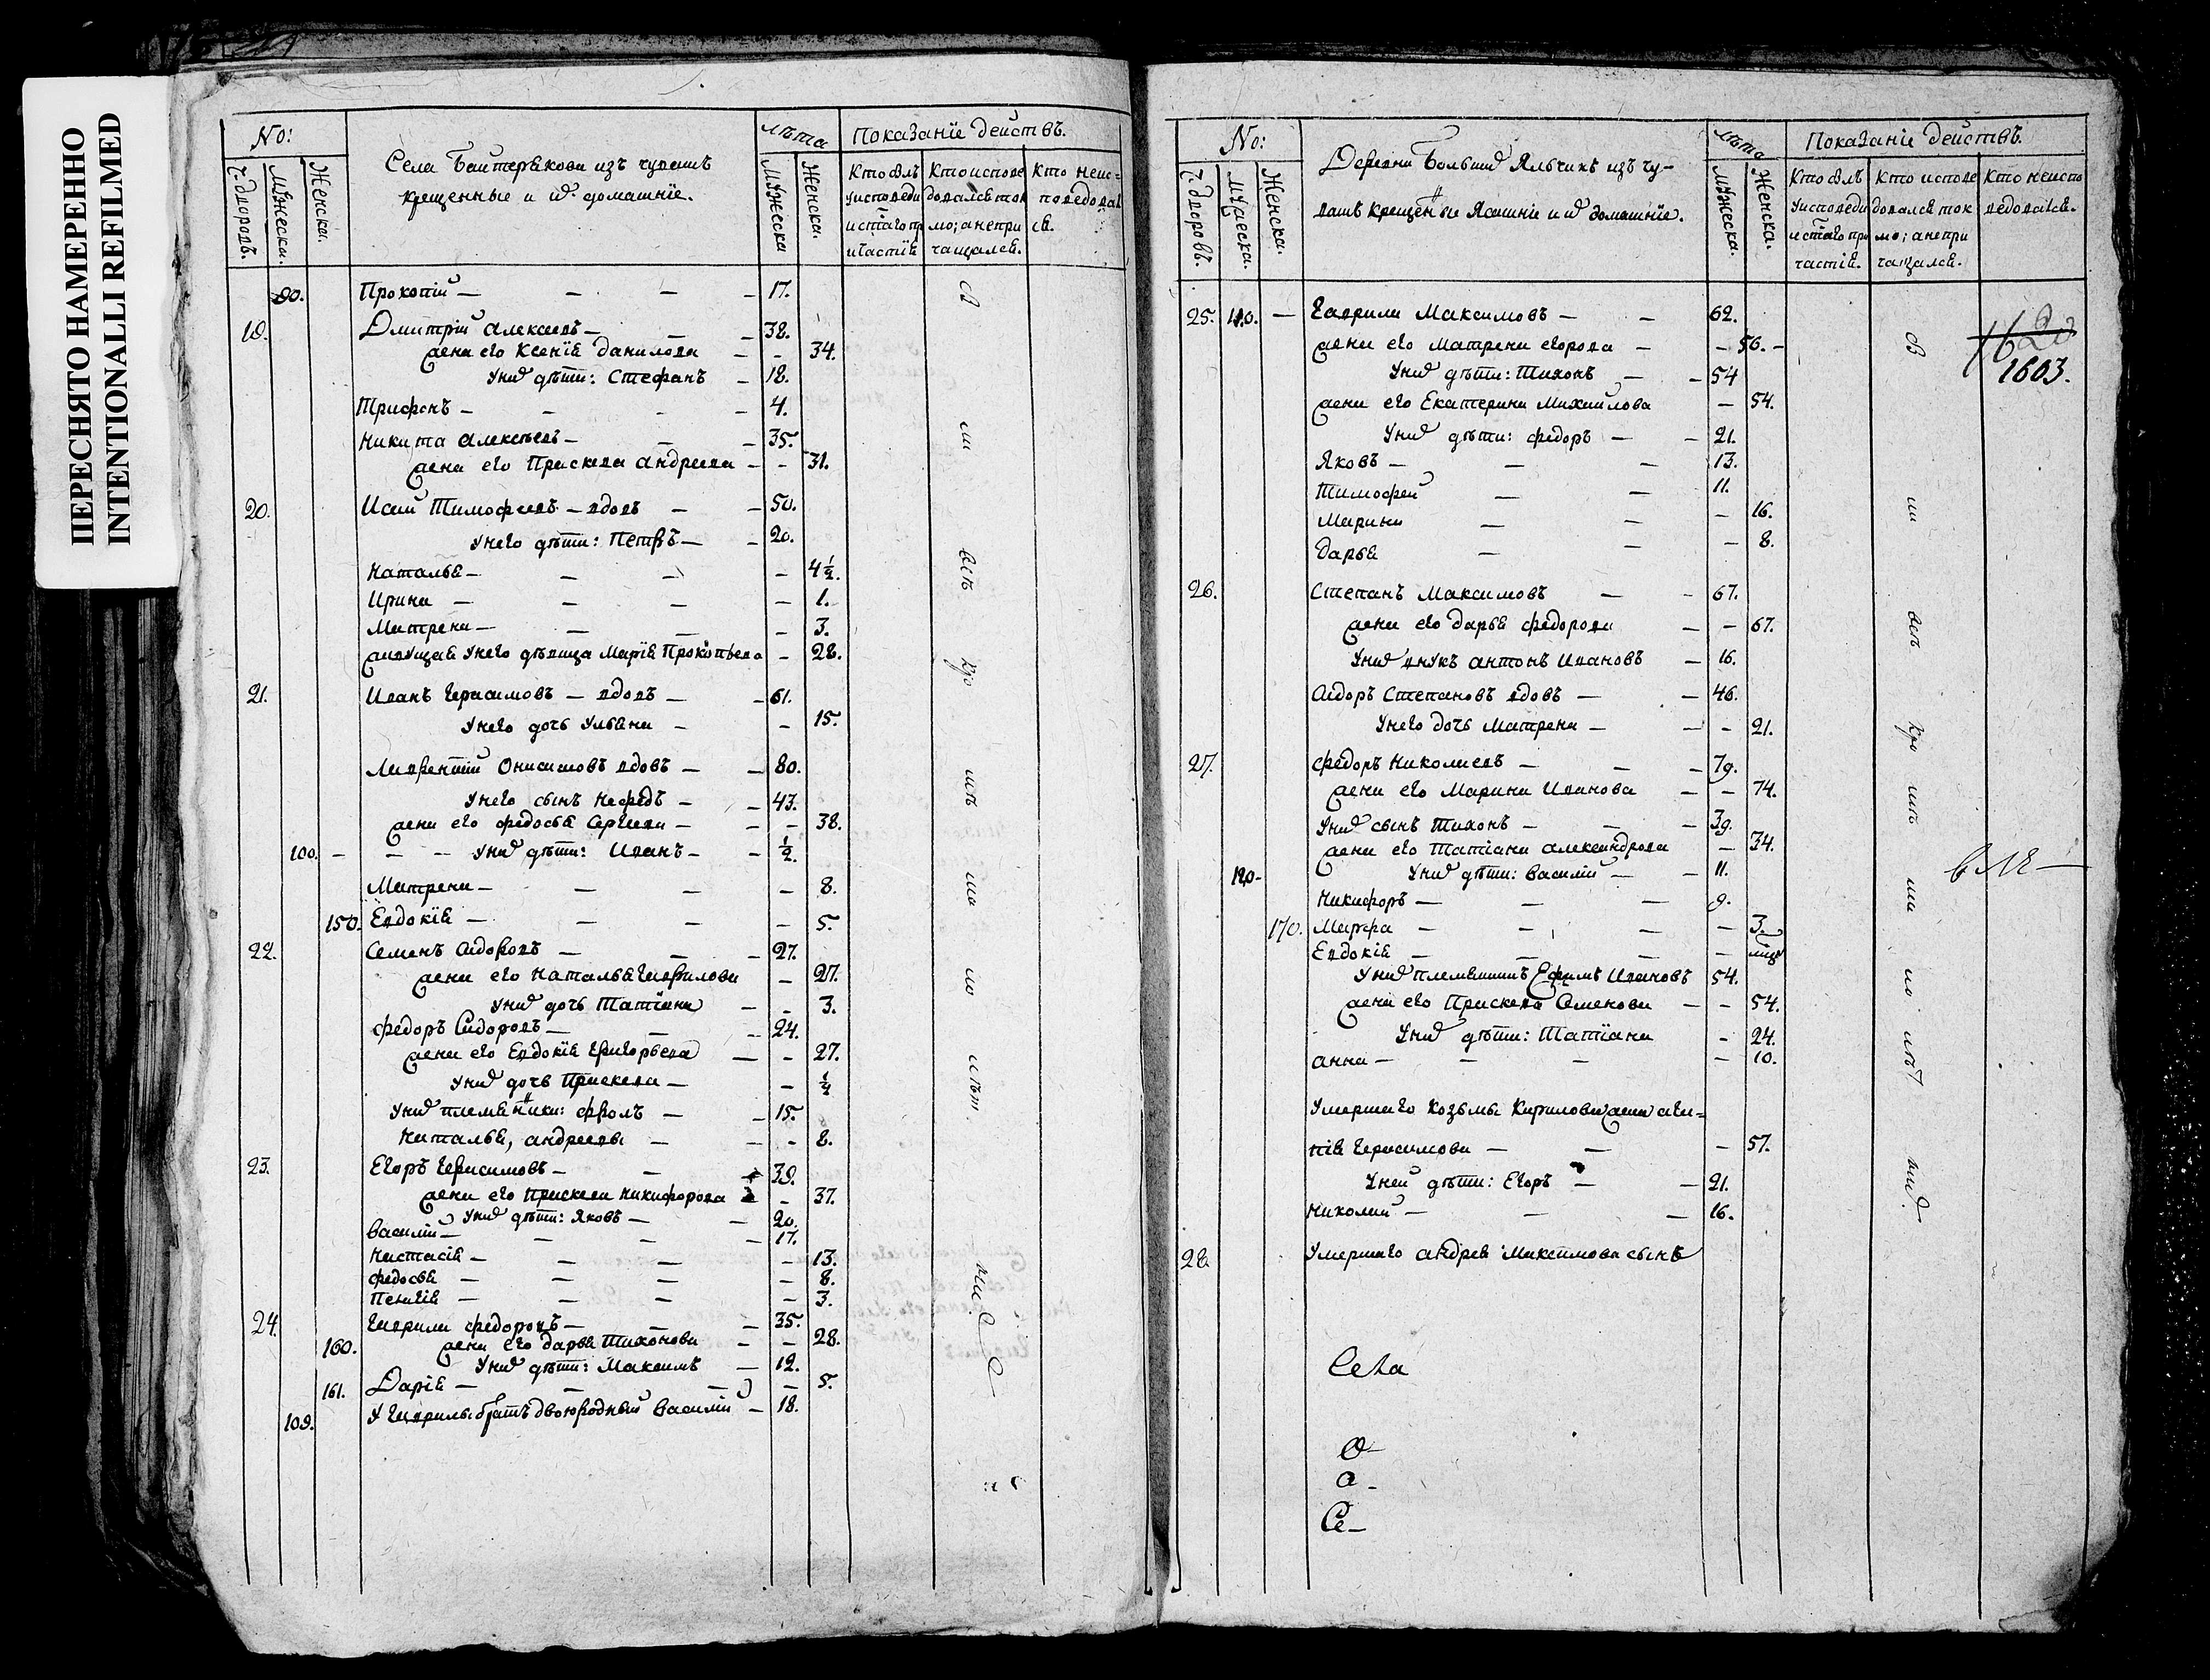 ПЕРЕСНЯТО НАМЕРЕННО
INTENTIONALLI REFILMED
No:
Села Баитерѣкова изъ чувашъ
крещенные и их домашнїе.
лѣта
Показанїе действъ.
дворовъ.
Мужеска.
Женска.
Мужеска
Женска.
Кто былъ у исповеди и стаго причастїя
Кто исповедовался токмо; а не причащался.
Кто не исповедовался.
90. Прокопїй — 17.
19. Дмитрїй Алексеевъ — 38.
жена его Ксенїя Данилова — 34.
У них дѣти: Стефанъ — 18.
Трифонъ — 4.
Никита Алексѣевъ — 35.
жена его Прасковя Андреева — 31.
20. Исай Тимофеевъ — вдовъ — 50.
У него дѣти: Петръ — 20.
Наталья — 4½.
Ирина — 1.
Матрена — 3.
живущая у него дѣвица Марїя Прокопьева — 28.
21. Иванъ Герасимовъ — вдовъ — 61.
У него дочь Ульяна — 15.
Лаврентїй Онисимовъ вдовъ — 80.
У него сынъ Нефедъ — 43.
жена его Федосья Сергеева — 38.
100. — У них дѣти: Иванъ — ½.
Матрена — 8.
150. Евдокїя — 5.
22. Семенъ Сидоровъ — 27.
жена его Наталья Гаврилова — 27.
У них дочь Татїана — 3.
Федоръ Сидоровъ — 24.
жена его Евдокїя Григорьева — 27.
У них дочь Прасковя — ½
У них племянники: Фролъ — 15.
Наталья, Андреевы — 8.
23. Егоръ Герасимовъ — 39.
жена его Прасковя Никифорова — 37.
У них дѣти: Яковъ — 20.
Василїй — 17.
Настасїя — 13.
Федосья — 8.
Пелагїя — 3.
24. Гаврила Федоровъ — 35.
160. жена его Дарья Тихонова — 28.
У них дѣти: Максимъ — 12.
161. Дарїя — 5.
109. У Гаврилы братъ двоюродный Василїй — 18.
No:
Деревни Большихъ Яльчикъ изъ чу-
вашъ крещенные Ясашнїе и их домашнїе.
лѣта
Показанїе действъ.
дворовъ.
Мужеска.
Женска.
Мужеска.
Женска.
Кто былъ у исповеди и стаго причастїя.
Кто исповедовался токмо; а не причащался.
Кто не исповедовался.
1603.
25. 110. — Гаврила Максимовъ — 62.
жена его Матрена Егорова — 56. —
У них дѣти: Тихонъ — 54
жена его Екатерина Михайлова — 54.
У них дѣти: Федоръ — 21.
Яковъ — 13.
Тимофей — 11.
Марина — 16.
Дарья — 8.
26. Степанъ Максимовъ — 67.
жена его Дарья Федорова — 67.
У них внукъ Антонъ Ивановъ — 16.
Сидоръ Степановъ вдовъ — 46.
У него дочь Матрена — 21.
27. Федоръ Николаевъ — 79.
жена его Марина Иванова — 74.
У них сынъ Тихонъ — 39.
жена его Татїана Александрова — 34.
120. У них дѣти: Василїй — 11.
Никифоръ — 9.
170. Марфа — 3.
Евдокїя —
У них племянникъ Ефимъ Ивановъ 54.
жена его Прасковя Семенова — 54.
У них дѣти: Татїана — 24.
Анна — 10.
Умершаго Козьмы Кирилова жена Ага-
пїя Герасимова — 57.
У ней дѣти: Егоръ — 21.
Николай — 16.
28. Умершаго Андрея Максимова сынъ
Села
О —
а —
Се —